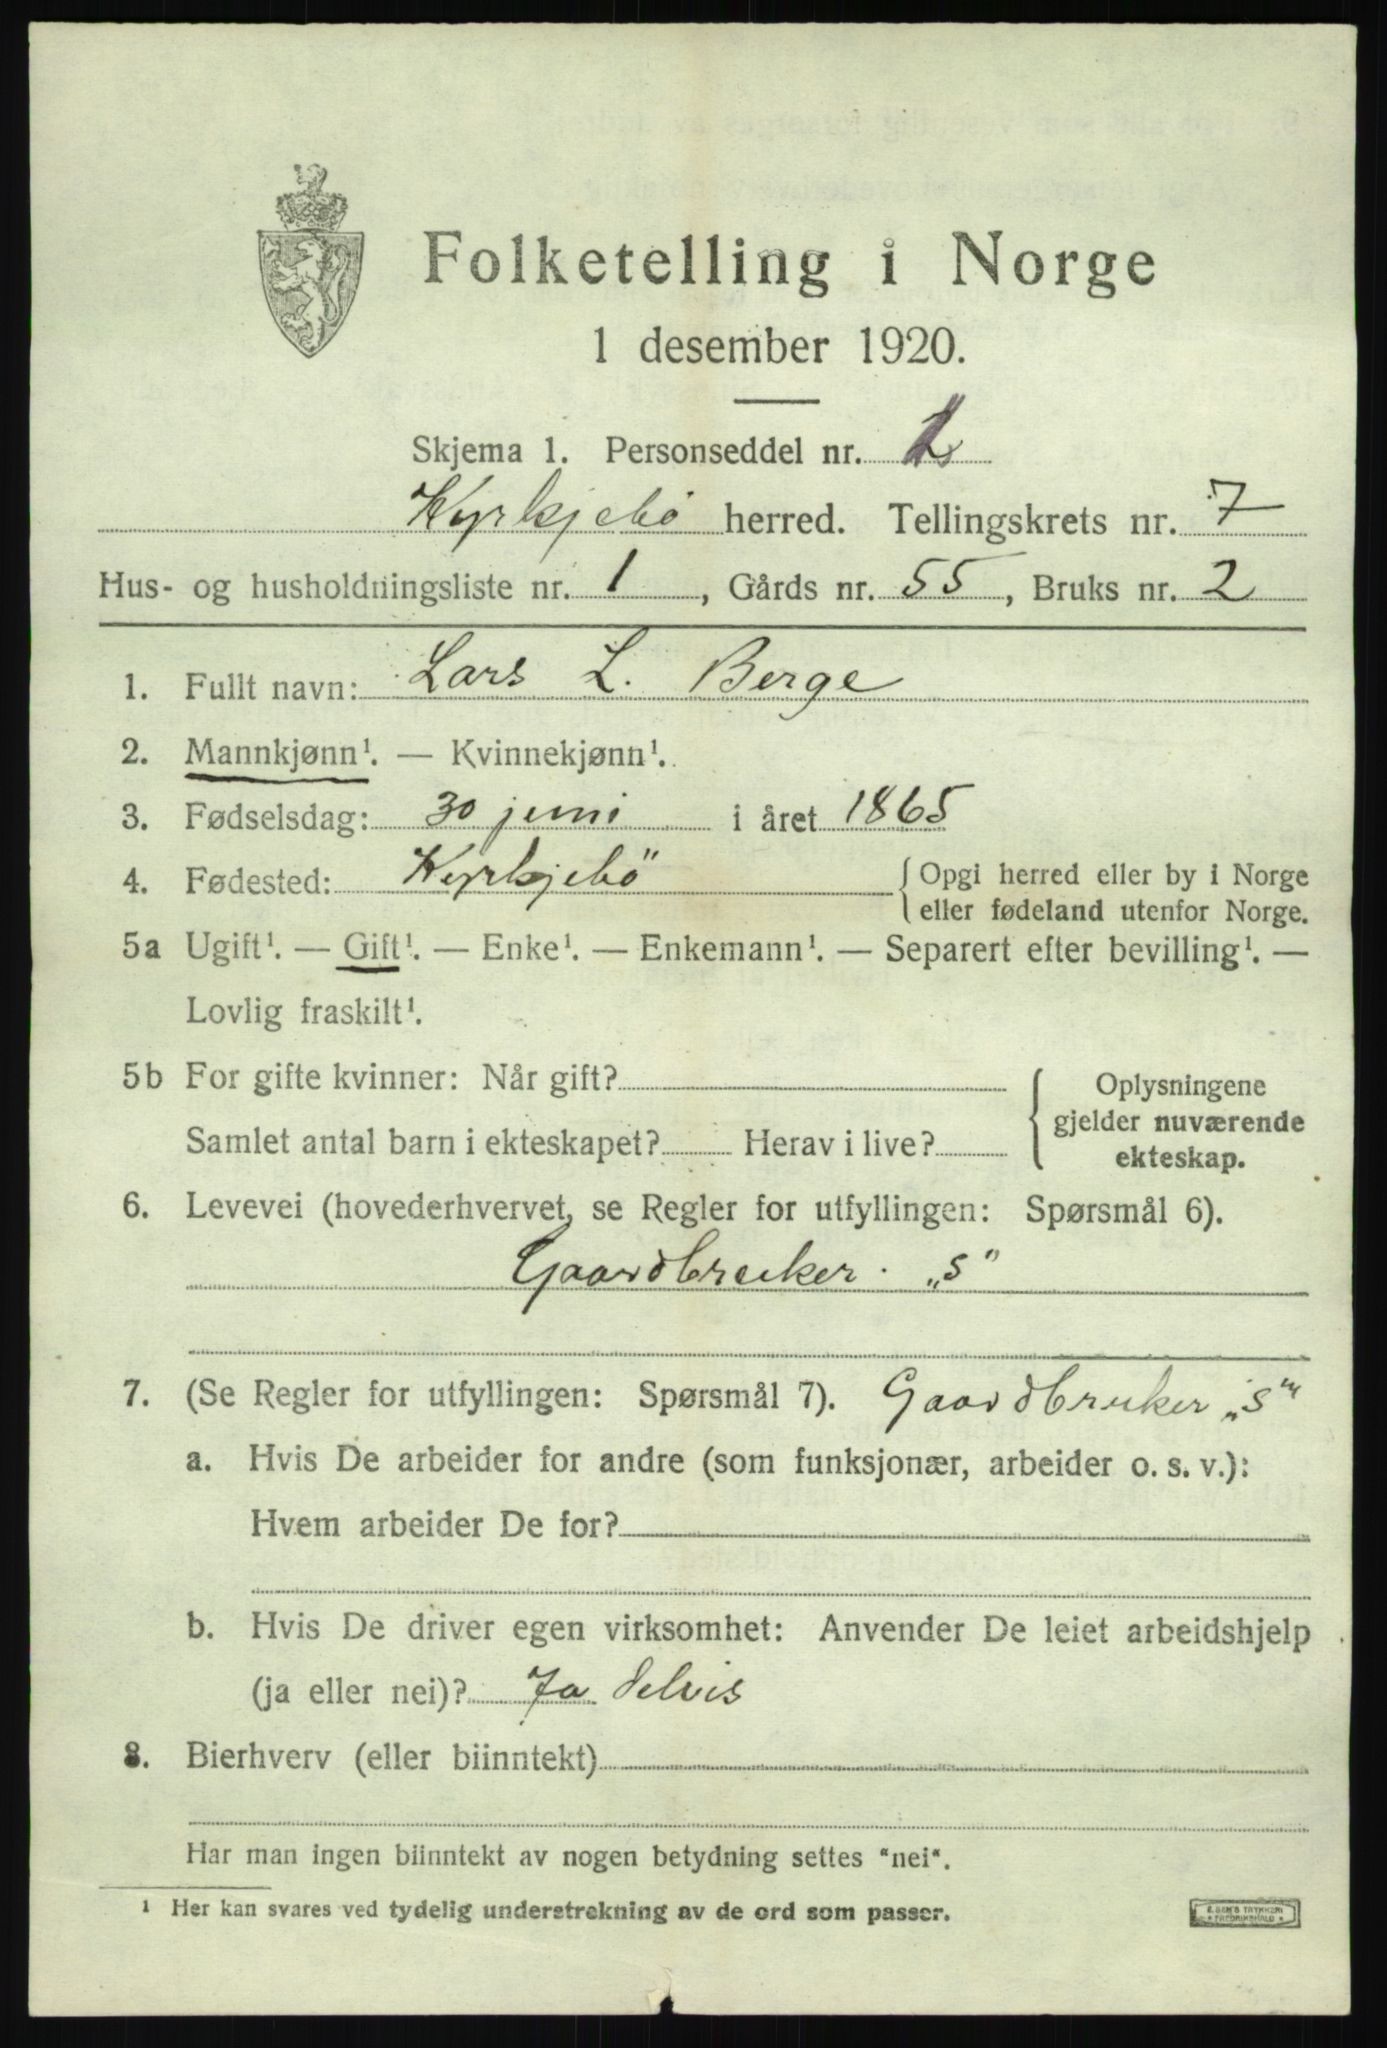 Folketelling i Norge
1 desember 1920.
Skjema 1. Personseddel nr.
Kyrkjebö herred. Tellingskrets nr. 7
Hus- og husholdningsliste nr. 1, Gårds nr. 55, Bruks nr. 2
1. Fullt navn: Lars L. Berge
2. Mannkjønn¹. — Kvinnekjønn¹.
3. Fødselsdag: 30 juni i året 1865
4. Fødested: Kyrkjebö { Opgi herred eller by i Norge
eller fødeland utenfor Norge.
5a Ugift¹. — Gift¹. — Enke¹. — Enkemann¹. — Separert efter bevilling¹. —
Lovlig fraskilt¹.
5b For gifte kvinner: Når gift? { Oplysningene
gjelder nuværende
Samlet antal barn i ekteskapet? Herav i live? ekteskap.
6. Levevei (hovederhvervet, se Regler for utfyllingen: Spørsmål 6).
Gaardbruker. „S"
7. (Se Regler for utfyllingen: Spørsmål 7). Gaardbruker „S"
a. Hvis De arbeider for andre (som funksjonær, arbeider o. s. v.):
Hvem arbeider De for?
b. Hvis De driver egen virksomhet: Anvender De leiet arbeidshjelp
(ja eller nei)? Ja delvis
8. Bierhverv (eller biinntekt)
Har man ingen biinntekt av nogen betydning settes "nei".
¹ Her kan svares ved tydelig understrekning av de ord som passer.